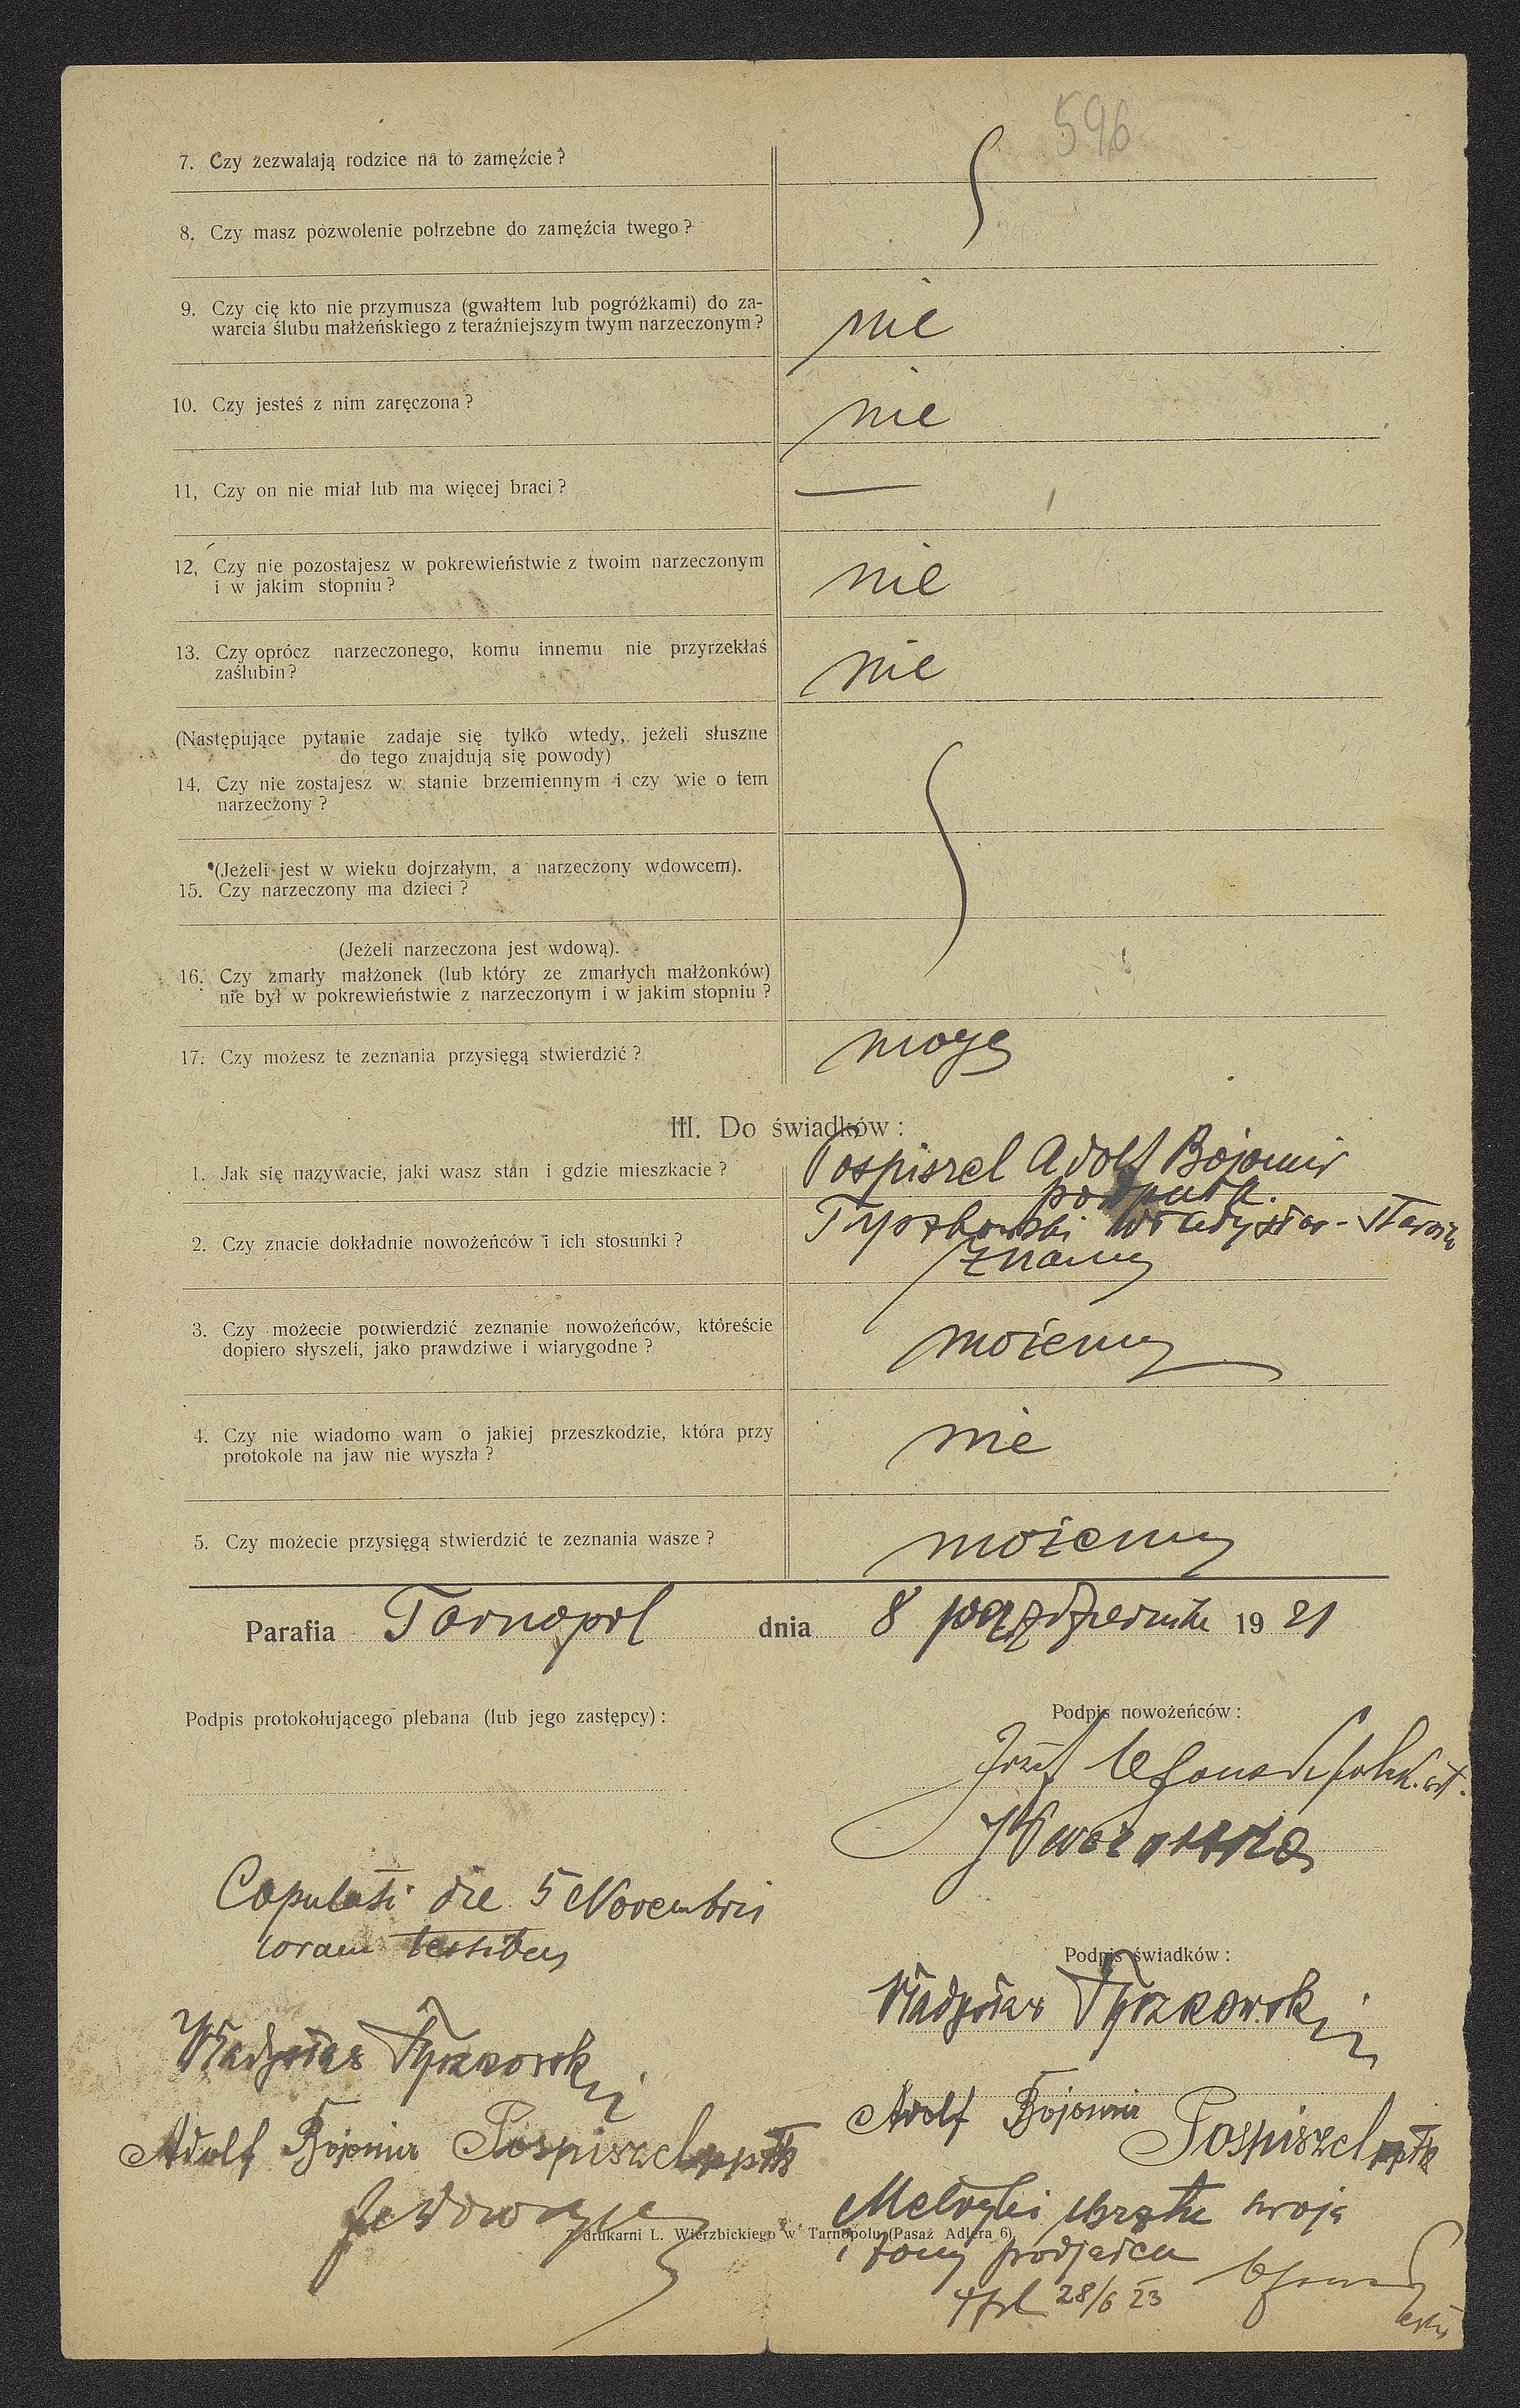 596
7. Czy zezwalają rodzice na to zamęźcie?
8. Czy masz pozwolenie potrzebne do zamęźcia twego?
9. Czy cię kto nie przymusza (gwałtem lub pogróżkami) do za-
warcia ślubu małżeńskiego z teraźniejszym twym narzeczonym?
nie
10. Czy jesteś z nim zaręczona?
nie
11, Czy on nie miał lub ma więcej braci?
—
12, Czy nie pozostajesz w pokrewieństwie z twoim narzeczonym
i w jakim stopniu?
nie
13. Czy oprócz narzeczonego, komu innemu nie przyrzekłaś
zaślubin?
nie
(Następujące pytanie zadaje się tylko wtedy, jeżeli słuszne
do tego znajdują się powody)
14. Czy nie zostajesz w stanie brzemiennym i czy wie o tem
narzeczony?
(Jeżeli jest w wieku dojrzałym, a narzeczony wdowcem).
15. Czy narzeczony ma dzieci?
(Jeżeli narzeczona jest wdową).
16. Czy zmarły małżonek (lub który ze zmarłych małżonków)
nie był w pokrewieństwie z narzeczonym i w jakim stopniu?
17. Czy możesz te zeznania przysięgą stwierdzić?
mogę
III. Do świadków:
1. Jak się nazywacie, jaki wasz stan i gdzie mieszkacie?
Pospiszel Adolf Bojomir
Tyszkowski Władysław -
2. Czy znacie dokładnie nowożeńców i ich stosunki?
znamy
3. Czy możecie potwierdzić zeznanie nowożeńców, któreście
dopiero słyszeli, jako prawdziwe i wiarygodne?
możemy
4. Czy nie wiadomo wam o jakiej przeszkodzie, która przy
protokole na jaw nie wyszła?
nie
5. Czy możecie przysięgą stwierdzić te zeznania wasze?
możemy
Parafia Tarnopol dnia 8 października 19 21
Podpis protokołującego plebana (lub jego zastępcy):
Podpis nowożeńców:
Józef
Copulati die 5 Novembris
coram testibus
Podpis świadków:
Władysław Tyszkowski
Adolf Bojomir Pospiszel ppłk
Władysław Tyszkowski
Adolf Bojomir Pospiszel ppłk
Z drukarni L. Wierzbickiego w Tarnopolu (Pasaż Adlera 6)
Metryki chrztu swoją
i żony podjąłem
28/6 23